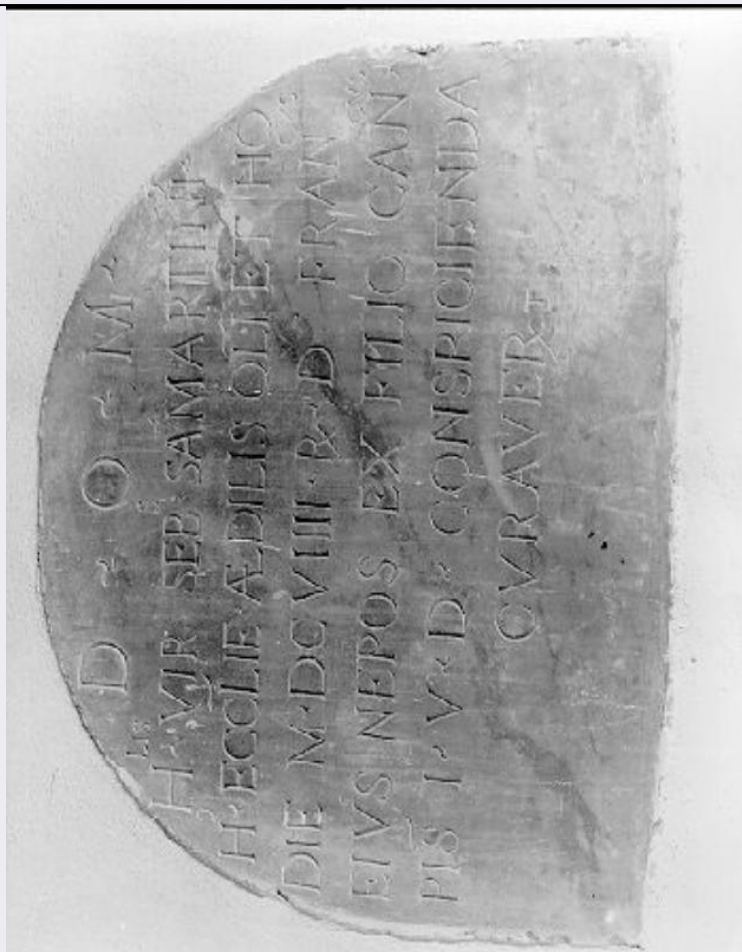 D · O · M ·
H · VIR SEB · SAMARTIN
H · ECCLIE ÆDILIS OLI ET HO
DIE M · DCVIIII · R · D FRAN
EIVS NEPOS EX FILIO CAN
PIS I · V · D · CONSPICIENDA
CVRAVER